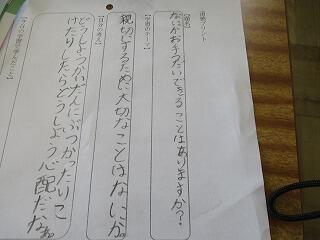 道徳プリント
【題名】
なにかお手つだいできることはありますか？
【学習のテーマ】
親切にするために大切なことはなにか。
【自分の考え】
どうしよう、かいだんにぶつかったりこ
けたりしたらどうしよう心配だなぁ。